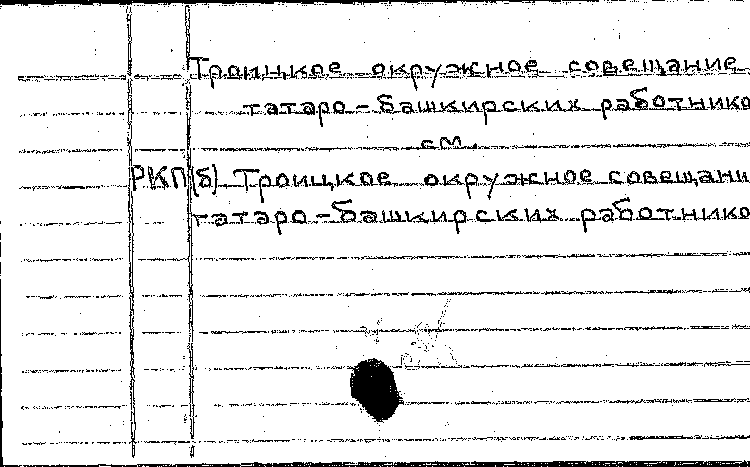 Троицкое окружное совещание
татаро-башкирских работнико
см.
РКП(б). Троицкое окружное совещани
татаро-башкирских работнико